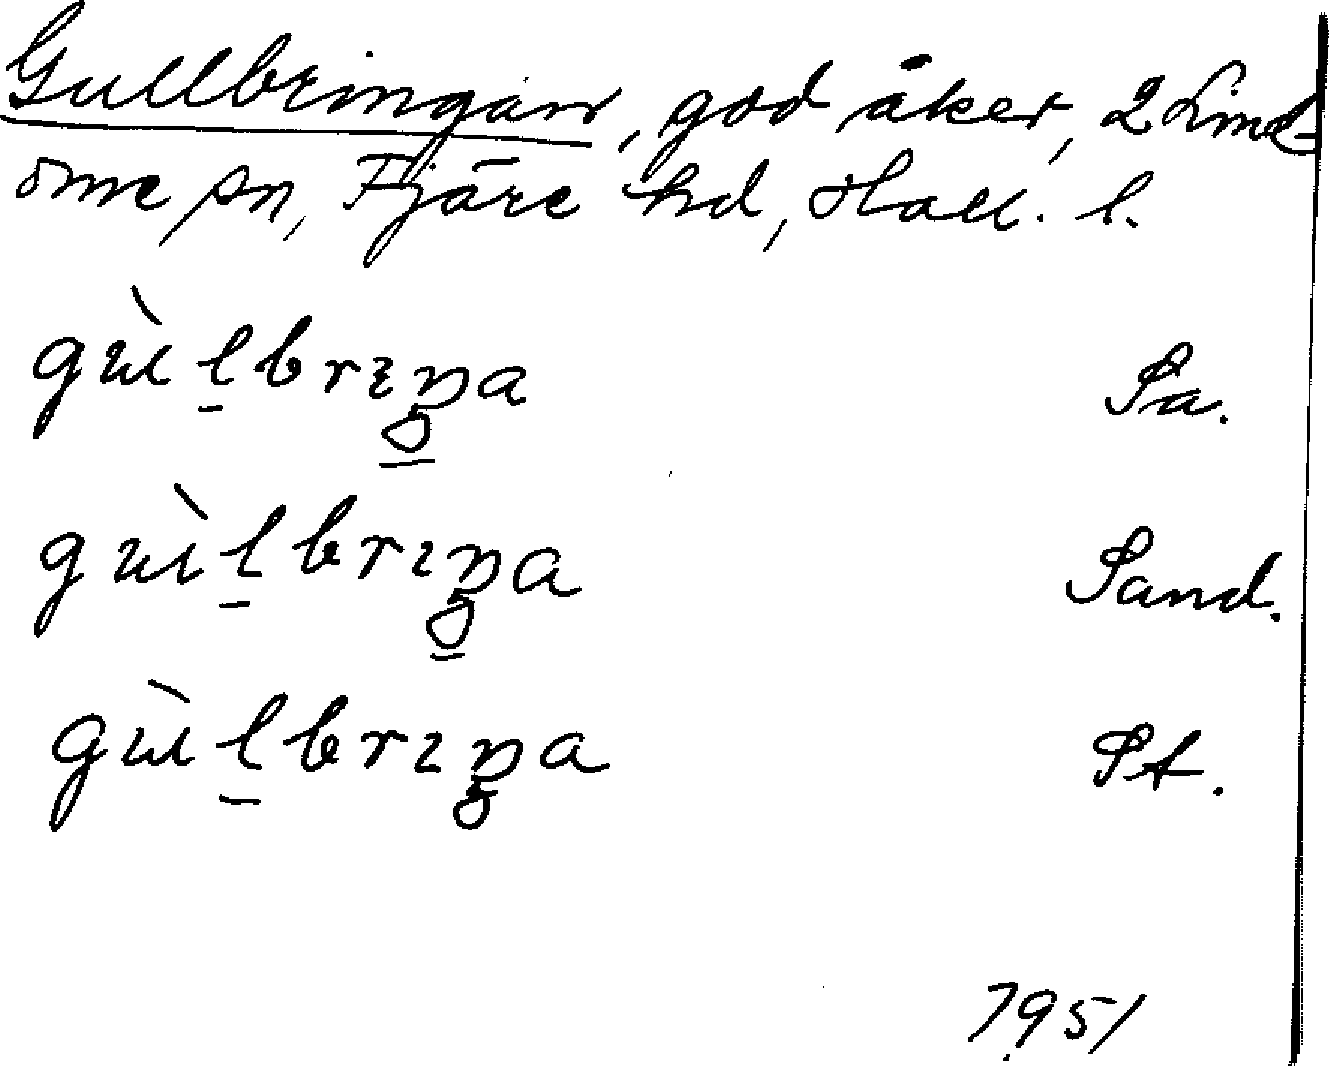 Gullbringan, god åker, 2 Lind-
ome sn, Fjäre hd, Hall. l.
gùl̠brıŋa Sa.
gùl̠brıŋa Sand.
gùl̠brıŋa St.
7951